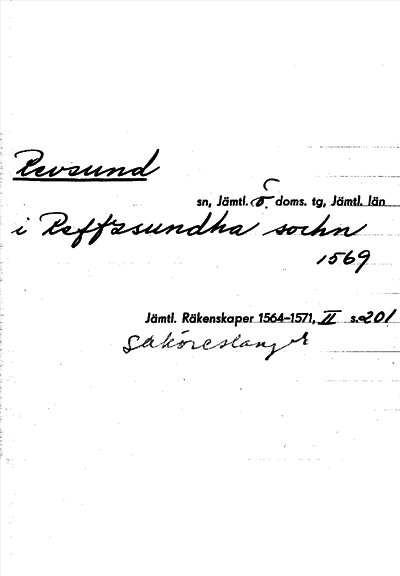 Revsund
sn, Jämtl. ö. doms. tg, Jämtl. län
i Reffzsundha sochn
1569
Jämtl. Räkenskaper 1564–1571, II s. 201
Saköreslängd